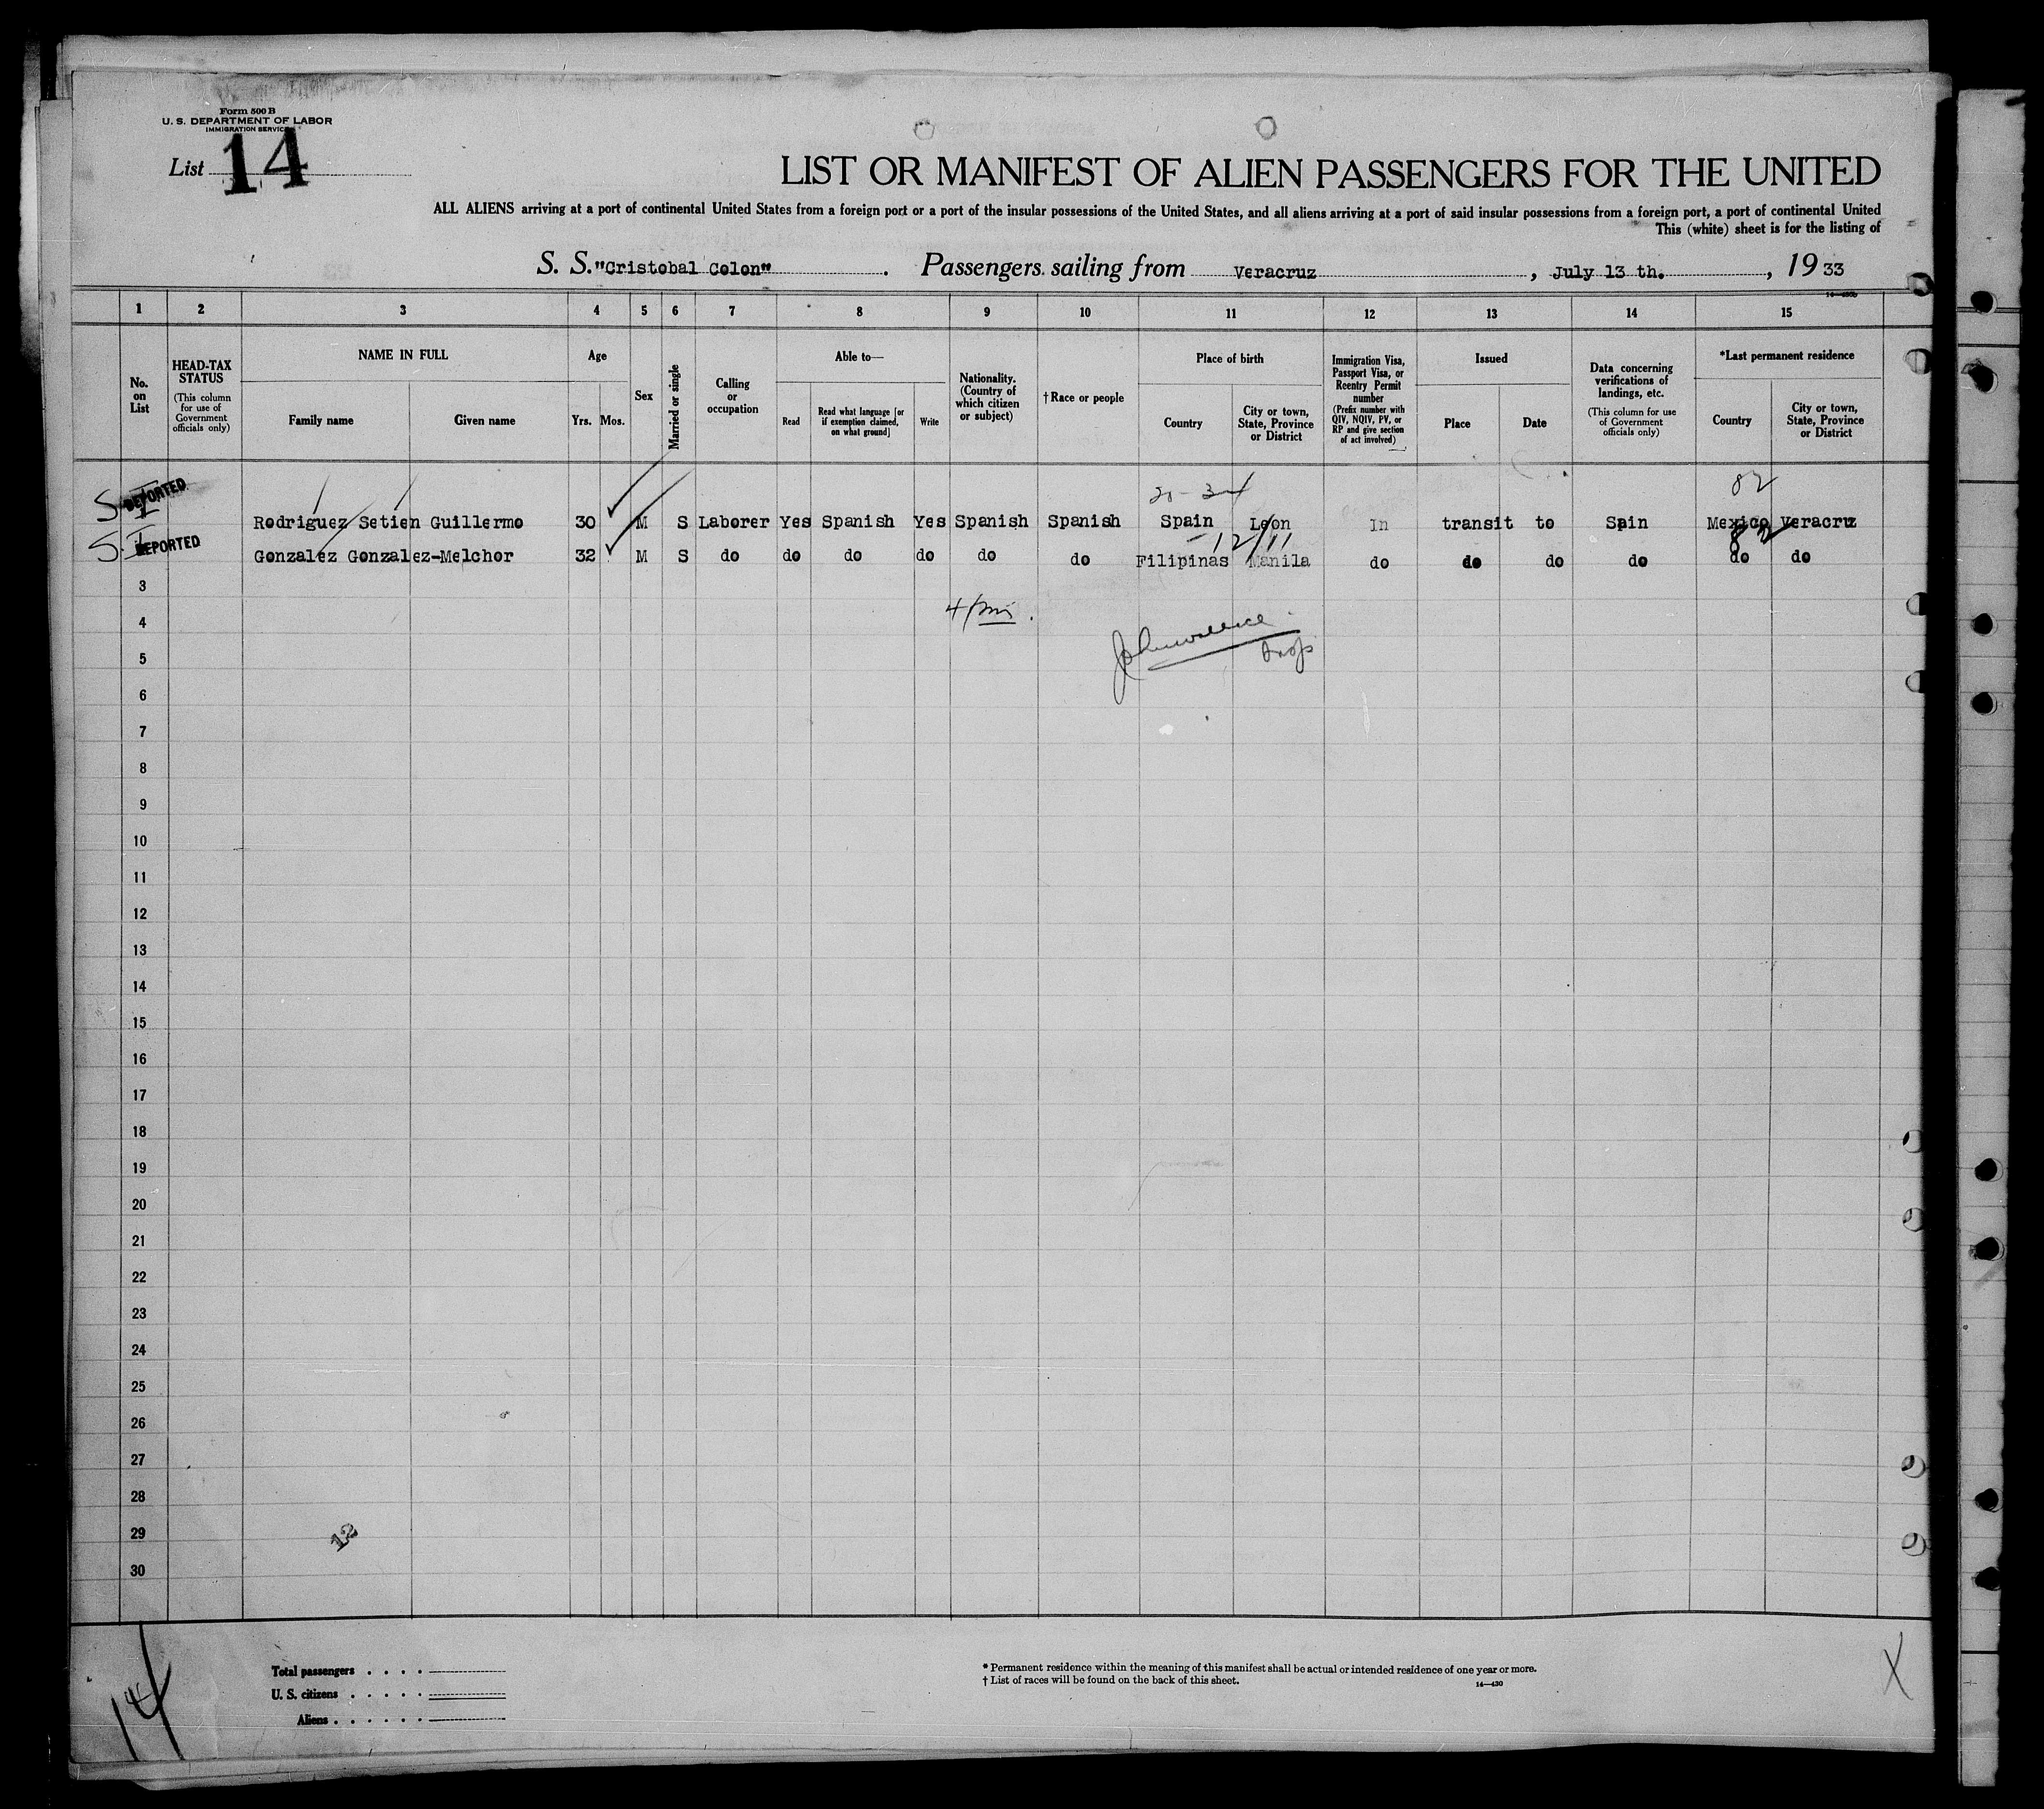 Form 500 B
U. S. DEPARTMENT OF LABOR
IMMIGRATION SERVICE
List 14
LIST OR MANIFEST OF ALIEN PASSENGERS FOR THE UNITED
ALL ALIENS arriving at a port of continental United States from a foreign port or a port of the insular possessions of the United States, and all aliens arriving at a port of said insular possessions from a foreign port, a port of continental United
This (white) sheet is for the listing of
S. S. "Cristobal Colon" . Passengers sailing from Veracruz , July 13 th. , 19 33
1 2 3 4 5 6 7 8 9 10 11 12 13 14 15
No. on List
HEAD-TAX STATUS
(This column for use of Government officials only)
NAME IN FULL
Family name Given name
Age
Yrs. Mos.
Sex
Married or single
Calling or occupation
Able to—
Read
Read what language [or if exemption claimed, on what ground]
Write
Nationality. (Country of which citizen or subject)
†Race or people
Place of birth
Country
City or town, State, Province or District
Immigration Visa, Passport Visa, or Reentry Permit number
(Prefix number with QIV, NQIV, PV, or RP and give section of act involved)
Issued
Place Date
Data concerning verifications of landings, etc.
(This column for use of Government officials only)
*Last permanent residence
Country
City or town, State, Province or District
82
S.I DEPORTED Rodriguez Setien Guillermo 30 M S Laborer Yes Spanish Yes Spanish Spanish Spain Leon In transit to Spain Mexico Veracruz
12/11 82
S.I DEPORTED Gonzalez Gonzalez-Melchor 32 M S do do do do do do Filipinas Manila do do do do do do
3
4
5
6
7
8
9
10
11
12
13
14
15
16
17
18
19
20
21
22
23
24
25
26
27
28
29
30
12
14
Total passengers . . . .
U. S. citizens . . . . .
Aliens . . . . . .
* Permanent residence within the meaning of this manifest shall be actual or intended residence of one year or more.
† List of races will be found on the back of this sheet.
14—430
X